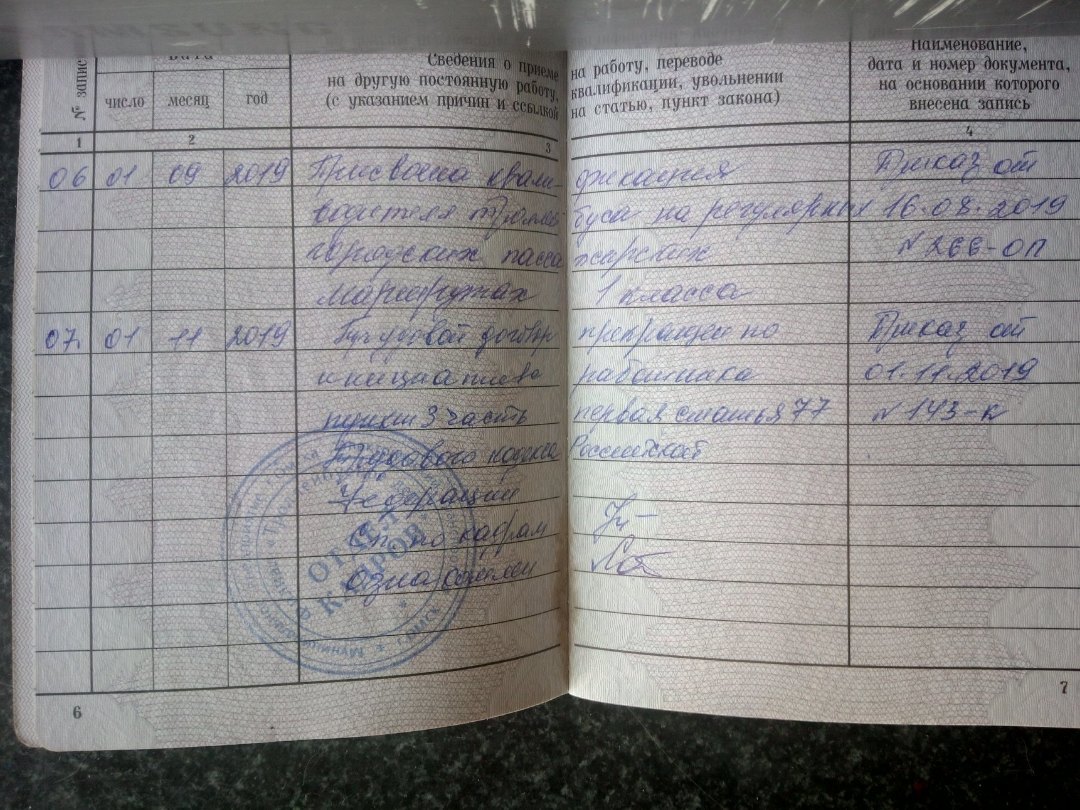 № запис
Дата
число месяц год
Сведения о приеме на работу, переводе
на другую постоянную работу, квалификации, увольнении
(с указанием причин и ссылкой на статью, пункт закона)
Наименование,
дата и номер документа,
на основании которого
внесена запись
1 2 3 4
06 01 09 2019 Присвоена квали- фикация Приказ от
водителя троллей буса на регулярных 16.08.2019
городских пасса жирских № 266-ОП
маршрутах 1 класса
07. 01 11 2019 Трудовой договор прекращен по Приказ от
инициативе работника 01.11.2019
пункт 3 часть первая статья 77 № 143-к
Трудового кодекса Российской
Федерации
по кадрам
ознакомлен
ОТДЕЛ
КАДРОВ
6
7